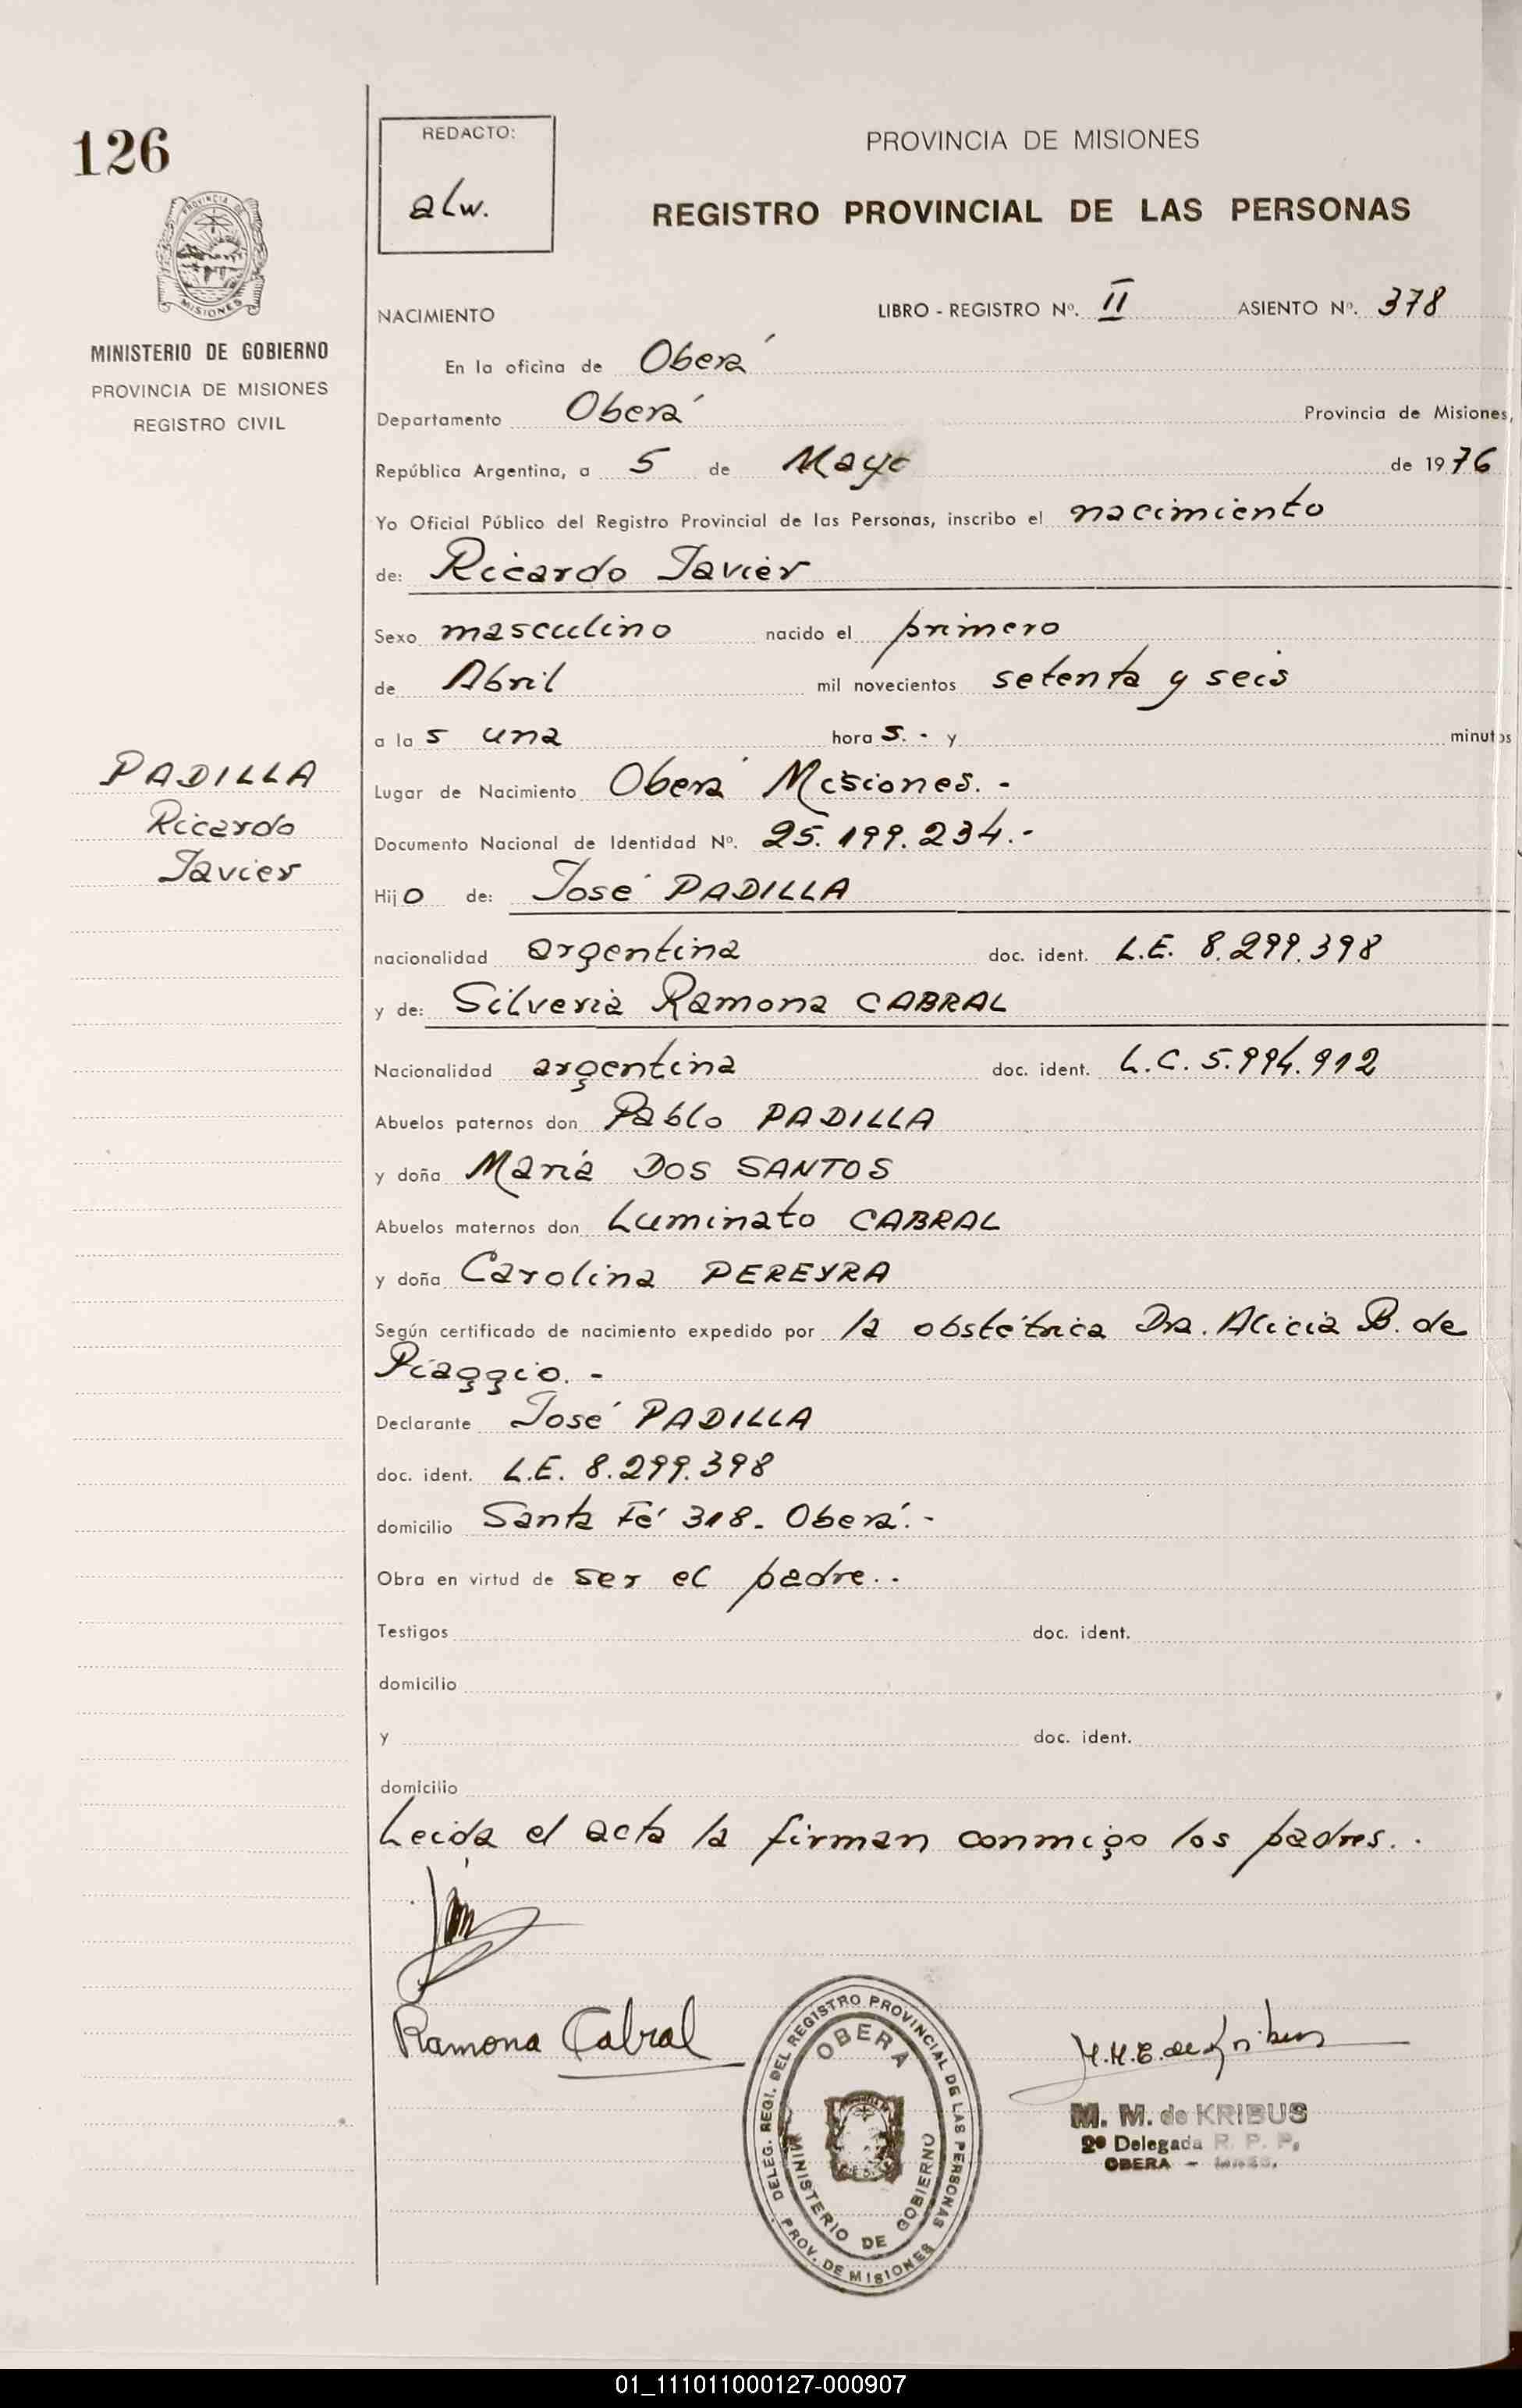 126
REDACTO:
alw.
PROVINCIA DE MISIONES
REGISTRO PROVINCIAL DE LAS PERSONAS
PROVINCIA DE MISIONES
NACIMIENTO LIBRO - REGISTRO Nº. II ASIENTO Nº. 378
MINISTERIO DE GOBIERNO
PROVINCIA DE MISIONES
REGISTRO CIVIL
En la oficina de Oberá
Departamento Oberá Provincia de Misiones,
República Argentina, a 5 de Mayo de 1976
Yo Oficial Público del Registro Provincial de las Personas, inscribo el nacimiento
de: Ricardo Javier
Sexo masculino nacido el primero
de Abril mil novecientos setenta y seis
a las una horas.- y minutos
PADILLA
Ricardo
Javier
Lugar de Nacimiento Oberá Misiones.-
Documento Nacional de Identidad Nº. 25.199.234.-
Hijo de: José PADILLA
nacionalidad argentina doc. ident. L.E. 8.299.398
y de: Silveria Ramona CABRAL
Nacionalidad argentina doc. ident. L.C. 5.994.912
Abuelos paternos don Pablo PADILLA
y doña María DOS SANTOS
Abuelos maternos don Luminato CABRAL
y doña Carolina PEREYRA
Según certificado de nacimiento expedido por la obstétrica Dra. Alicia B. de
Piaggio.-
Declarante José PADILLA
doc. ident. L.E. 8.299.398
domicilio Santa Fé 318- Oberá.-
Obra en virtud de ser el padre..
Testigos doc. ident.
domicilio
y doc. ident.
domicilio
Leida el acta la firman conmigo los padres..
Ramona Cabral
DELEG. REGI. DEL REGISTRO PROVINCIAL DE LAS PERSONAS
PROV. DE MISIONES
OBERA
MINISTERIO DE GOBIERNO
M. M. de KRIBUS
2º Delegada R. P. P.
OBERA -
01_111011000127-000907